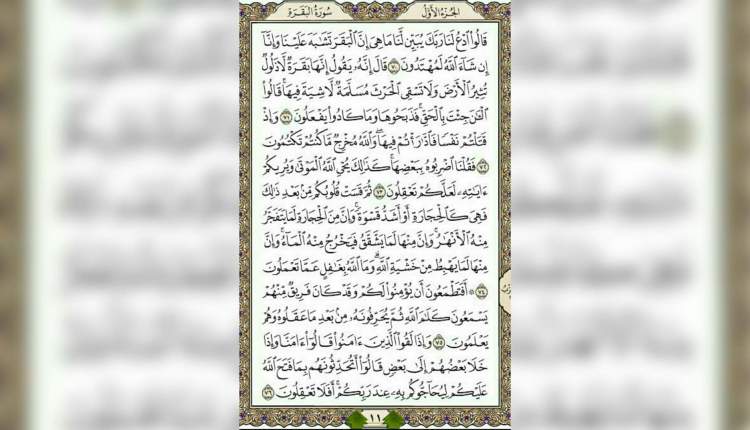 الجزء الأول
سورة البقرة
قَالُوا۟ ٱدْعُ لَنَا رَبَّكَ يُبَيِّن لَّنَا مَا هِىَ إِنَّ ٱلْبَقَرَ تَشَٰبَهَ عَلَيْنَا وَإِنَّآ
إِن شَآءَ ٱللَّهُ لَمُهْتَدُونَ ٧٠ قَالَ إِنَّهُۥ يَقُولُ إِنَّهَا بَقَرَةٌ لَّا ذَلُولٌ
تُثِيرُ ٱلْأَرْضَ وَلَا تَسْقِى ٱلْحَرْثَ مُسَلَّمَةٌ لَّا شِيَةَ فِيهَا ۚ قَالُوا۟
ٱلْـَٰٔنَ جِئْتَ بِٱلْحَقِّ ۚ فَذَبَحُوهَا وَمَا كَادُوا۟ يَفْعَلُونَ ٧١ وَإِذْ
قَتَلْتُمْ نَفْسًا فَٱدَّٰرَْٰٔتُمْ فِيهَا ۖ وَٱللَّهُ مُخْرِجٌ مَّا كُنتُمْ تَكْتُمُونَ
٧٢ فَقُلْنَا ٱضْرِبُوهُ بِبَعْضِهَا ۚ كَذَٰلِكَ يُحْىِ ٱللَّهُ ٱلْمَوْتَىٰ وَيُرِيكُمْ
ءَايَٰتِهِۦ لَعَلَّكُمْ تَعْقِلُونَ ٧٣ ثُمَّ قَسَتْ قُلُوبُكُم مِّنۢ بَعْدِ ذَٰلِكَ
فَهِىَ كَٱلْحِجَارَةِ أَوْ أَشَدُّ قَسْوَةً ۚ وَإِنَّ مِنَ ٱلْحِجَارَةِ لَمَا يَتَفَجَّرُ
مِنْهُ ٱلْأَنْهَٰرُ ۚ وَإِنَّ مِنْهَا لَمَا يَشَّقَّقُ فَيَخْرُجُ مِنْهُ ٱلْمَآءُ ۚ وَإِنَّ
مِنْهَا لَمَا يَهْبِطُ مِنْ خَشْيَةِ ٱللَّهِ ۗ وَمَا ٱللَّهُ بِغَٰفِلٍ عَمَّا تَعْمَلُونَ
٧٤ ۞ أَفَتَطْمَعُونَ أَن يُؤْمِنُوا۟ لَكُمْ وَقَدْ كَانَ فَرِيقٌ مِّنْهُمْ
يَسْمَعُونَ كَلَٰمَ ٱللَّهِ ثُمَّ يُحَرِّفُونَهُۥ مِنۢ بَعْدِ مَا عَقَلُوهُ وَهُمْ
يَعْلَمُونَ ٧٥ وَإِذَا لَقُوا۟ ٱلَّذِينَ ءَامَنُوا۟ قَالُوٓا۟ ءَامَنَّا وَإِذَا
خَلَا بَعْضُهُمْ إِلَىٰ بَعْضٍ قَالُوٓا۟ أَتُحَدِّثُونَهُم بِمَا فَتَحَ ٱللَّهُ
عَلَيْكُمْ لِيُحَآجُّوكُم بِهِۦ عِندَ رَبِّكُمْ ۚ أَفَلَا تَعْقِلُونَ ٧٦
١١